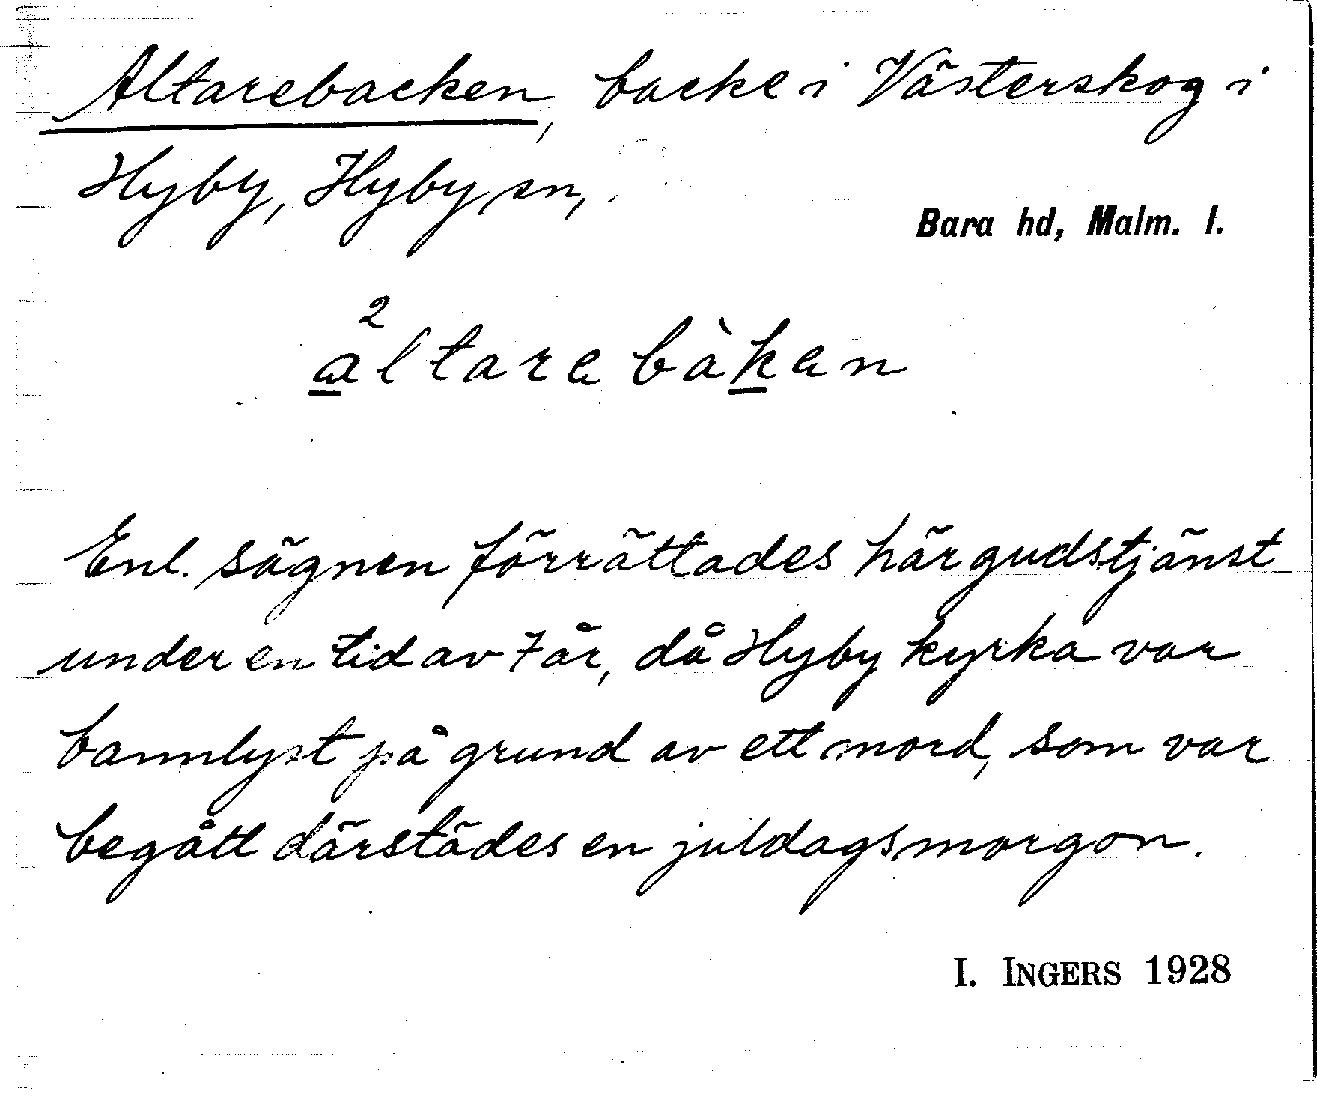 Altarebacken, backe i Västerskog i
Hyby, Hyby sn,
Bara hd, Malm. l.
2
altarebàken
Enl. sägnen förrättades här gudstjänst
under en tid av 7 år, då Hyby kyrka var
bannlyst på grund av ett mord, som var
begått därstädes en juldagsmorgon.
I. INGERS 1928